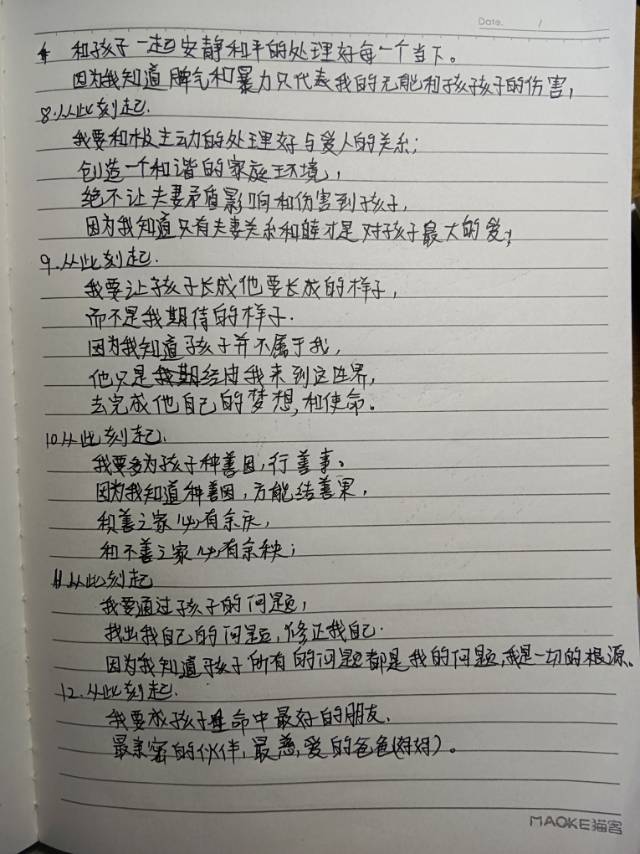 Date.        /
和孩子一起安静和平的处理好每一个当下。
因为我知道脾气和暴力只代表我的无能和孩孩子的伤害,
8.从此刻起.
我要和极主动的处理好与爱人的关系;
创造一个和谐的家庭环境,
绝不让夫妻矛盾影响和伤害到孩子,
因为我知道只有夫妻关系和睦才是对孩子最大的爱;
9.从此刻起.
我要让孩子长成他要长成的样子,
而不是我期待的样子.
因为我知道孩子并不属于我,
他只是经由我来到这世界,
去完成他自己的梦想,和使命。
10.从此刻起.
我要多为孩子种善因,行善事。
因为我知道种善因,方能结善果,
积善之家必有余庆,
和不善之家必有余秧;
11.从此刻起
我要通过孩子的问题,
找出我自己的问题,修正我自己.
因为我知道孩子所有的问题都是我的问题,我是一切的根源。
12.从此刻起.
我要成孩子生命中最好的朋友.
最亲密的伙伴,最慈爱的爸爸(妈妈)。
MAOKE猫客